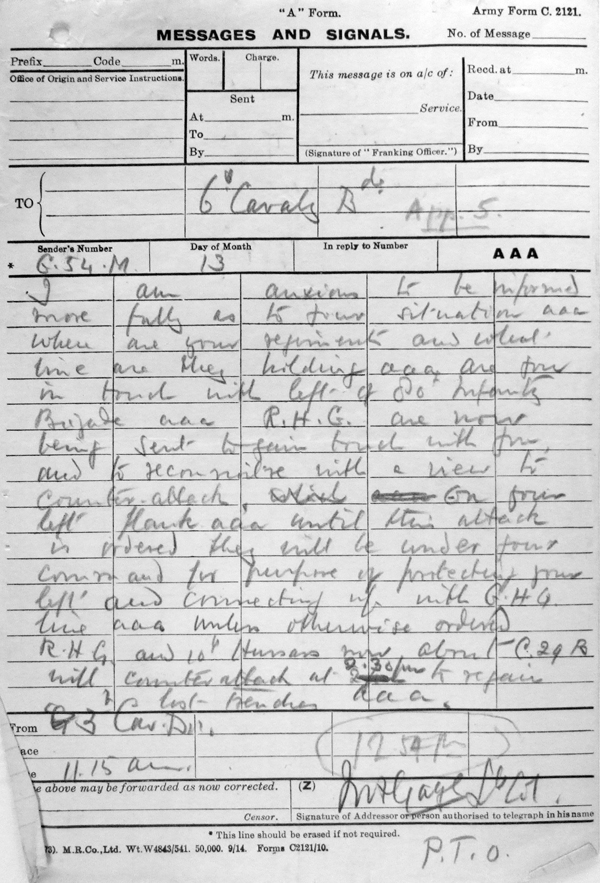 "A" Form.
Army Form C. 2121.
MESSAGES AND SIGNALS.
No. of Message
Prefix Code m.
Words. Charge.
This message is on a/c of:
Recd. at m.
Office of Origin and Service Instructions.
Sent
Date
At m.
Service.
From
To
By
(Signature of "Franking Officer.")
By
TO
6th Cavaly Bde
App. 5.
Sender's Number
Day of Month
In reply to Number
AAA
* G.54.M. 13
I am anxious to be informed
more fully as to your situation aaa
Where are your regiments and what
line are they holding aaa are you
in touch with left of 80th Infantry
Brigade aaa R.H.G. are now
being sent to gain touch with you
and to reconnoitre with a view to
Counter-attack on your
left flank aaa until this attack
is ordered they will be under your
command for purpose of protecting your
left and connecting up with G.H.Q.
line aaa unless otherwise ordered
R.H.G. and 10th Hussars now about C.29 B
will counter attack at 2.30 pm to regain
lost trenches aaa.
From G 3rd Cav. Div.
ace
12.54 pm
e 11.15 am.
e above may be forwarded as now corrected.
(Z)
Lt Col.
Censor.
Signature of Addressor or person authorised to telegraph in his name
* This line should be erased if not required.
M.R.Co., Ltd. Wt. W4843/541. 50,000. 9/14. Forms C2121/10.
P.T.O.